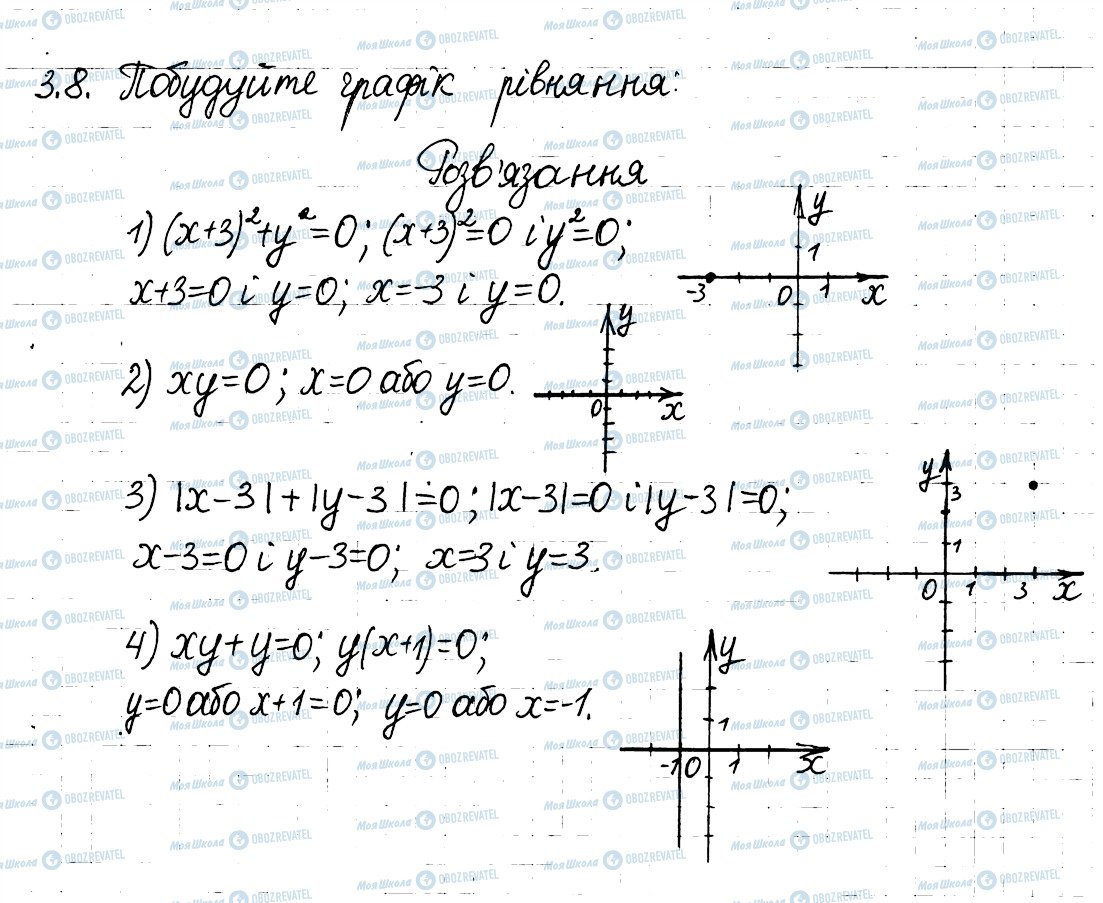 3.8. Побудуйте графік рівняння:
Розв'язання
1) (x+3)²+y²=0; (x+3)²=0 і y²=0;
x+3=0 і y=0; x=-3 і y=0.
y
1
-3 0 1 x
2) xy=0; x=0 або y=0.
y
0 x
3) |x-3|+|y-3|=0; |x-3|=0 і |y-3|=0;
x-3=0 і y-3=0; x=3 і y=3.
y
3
1
0 1 3 x
4) xy+y=0; y(x+1)=0;
y=0 або x+1=0; y=0 або x=-1.
y
1
-1 0 1 x
Моя Школа OBOZREVATEL